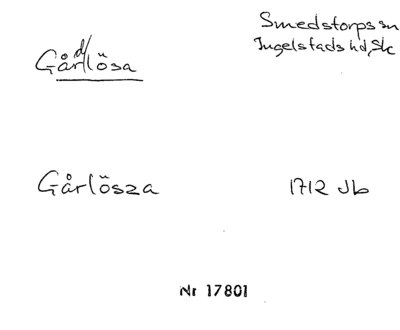 Smedstorps sn
Ingelstads hd, Sk
Gårdlösa
Gårlösza 1712 Jb
Nr 17801